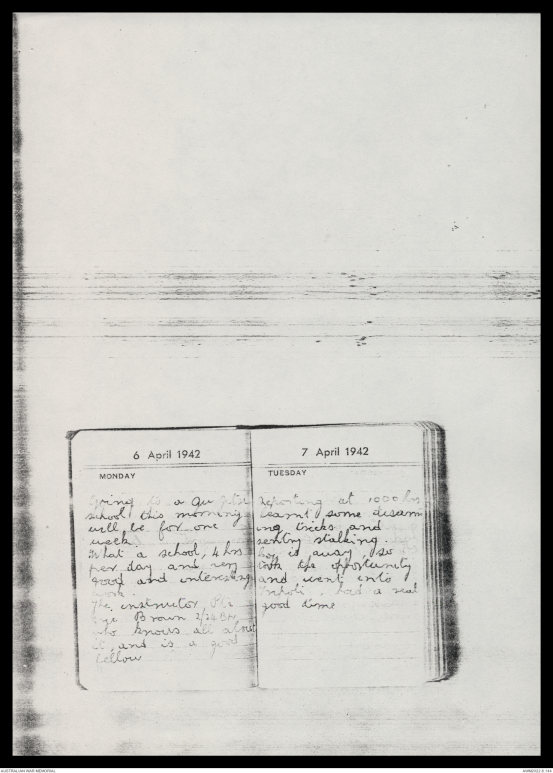 6 April 1942
MONDAY
Going to a
school this morning
will be for one
week.
What a school, 4 hrs
per day and very
good and interesting
work.
The instructor
Brown 2/24 Bn
who knows all about
it, and is a good
fellow
7 April 1942
TUESDAY
Reporting at 1000 hrs
learnt some disarm
ing tricks and
sentry stalking.
is away, so
took the opportunity
and went into
had a real
good time
AUSTRALIAN WAR MEMORIAL